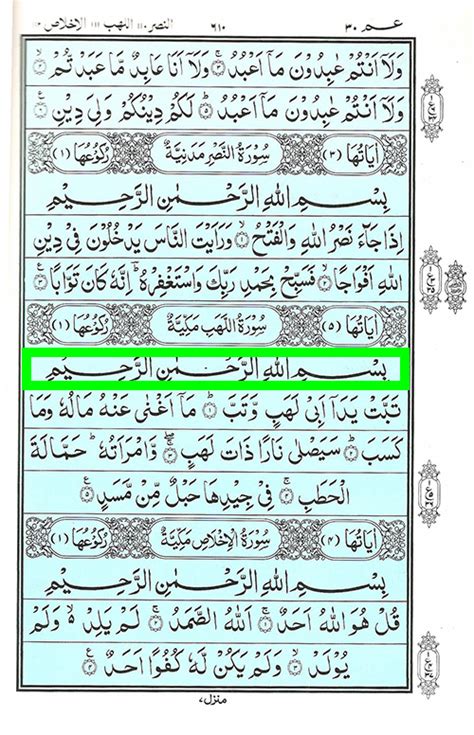 عـم ٣٠ ٦١٠ النصر ١١٠ اللهب ١١١ الاخلاص
وَلَاۤ اَنۡتُمۡ عٰبِدُوۡنَ مَاۤ اَعۡبُدُ ۚ‏﴿۳﴾ وَلَاۤ اَنَا عَابِدٌ مَّا عَبَدۡتُّمۡ
وَلَاۤ اَنۡتُمۡ عٰبِدُوۡنَ مَاۤ اَعۡبُدُ ؕ‏﴿۵﴾ لَكُمۡ دِيۡنُكُمۡ وَلِىَ دِيۡنِ ﴿۶﴾
اٰيَاتُهَا (٣) سُوۡرَةُ النَّصۡرِ مَدَنِيَّةٌ رُكُوۡعُهَا (١)
بِسۡمِ اللهِ الرَّحۡمٰنِ الرَّحِيۡمِ
اِذَا جَآءَ نَصۡرُ اللهِ وَالۡفَتۡحُ ۙ‏﴿۱﴾ وَرَاَيۡتَ النَّاسَ يَدۡخُلُوۡنَ فِىۡ دِيۡنِ
اللهِ اَفۡوَاجًا ۙ‏﴿۲﴾ فَسَبِّحۡ بِحَمۡدِ رَبِّكَ وَاسۡتَغۡفِرۡهُ ؔؕ اِنَّهٗ كَانَ تَوَّابًا ﴿۳﴾
اٰيَاتُهَا (٥) سُوۡرَةُ اللَّهَبِ مَكِّيَّةٌ رُكُوۡعُهَا (١)
بِسۡمِ اللهِ الرَّحۡمٰنِ الرَّحِيۡمِ
تَبَّتۡ يَدَاۤ اَبِىۡ لَهَبٍ وَّتَبَّ ؕ‏﴿۱﴾ مَاۤ اَغۡنٰى عَنۡهُ مَالُهٗ وَمَا
كَسَبَ ؕ‏﴿۲﴾ سَيَصۡلٰى نَارًا ذَاتَ لَهَبٍ ۖۚ‏﴿۳﴾ وَّامۡرَاَتُهٗ ؕ حَمَّالَةَ
الۡحَطَبِ ۚ‏﴿۴﴾ فِىۡ جِيۡدِهَا حَبۡلٌ مِّنۡ مَّسَدٍ ﴿۵﴾
اٰيَاتُهَا (٤) سُوۡرَةُ الۡاِخۡلَاصِ مَكِّيَّةٌ رُكُوۡعُهَا (١)
بِسۡمِ اللهِ الرَّحۡمٰنِ الرَّحِيۡمِ
قُلۡ هُوَ اللهُ اَحَدٌ ۚ‏﴿۱﴾ اَللهُ الصَّمَدُ ۚ‏﴿۲﴾ لَمۡ يَلِدۡ ۙ وَلَمۡ
يُوۡلَدۡ ۙ‏﴿۳﴾ وَلَمۡ يَكُنۡ لَّهٗ كُفُوًا اَحَدٌ ﴿۴﴾
منزل ٧